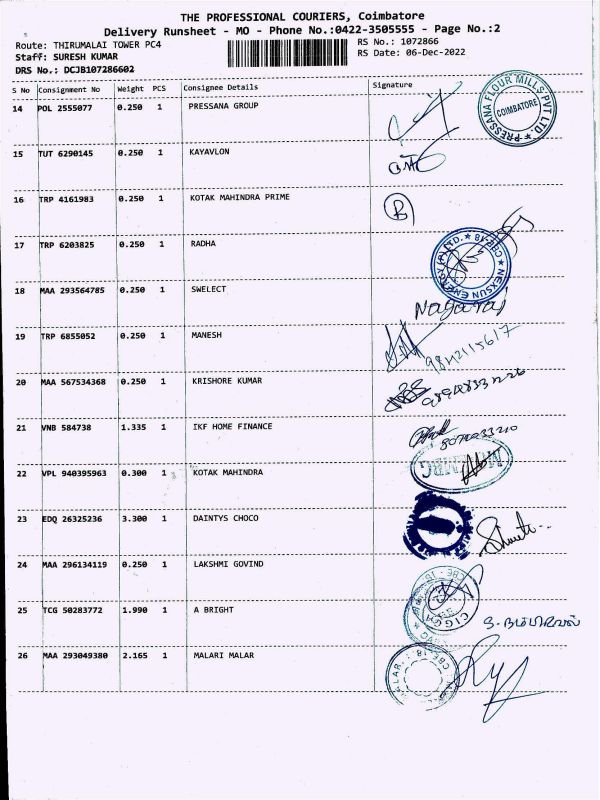 THE PROFESSIONAL COURIERS, Coimbatore
Delivery Runsheet - MO - Phone No.:0422-3505555 - Page No.:2
Route: THIRUMALAI TOWER PC4
RS No.: 1072866
Staff: SURESH KUMAR
RS Date: 06-Dec-2022
DRS No.: DCJB107286602
S No Consignment No Weight PCS Consignee Details Signature
14 POL 2555077 0.250 1 PRESSANA GROUP
PRESSANA FLOUR MILLS PVT LTD.
COIMBATORE
15 TUT 6290145 0.250 1 KAYAVLON
16 TRP 4161983 0.250 1 KOTAK MAHINDRA PRIME
17 TRP 6203825 0.250 1 RADHA
NEXSUN ENERGY (P) LTD. CBE-18
18 MAA 293564785 0.250 1 SWELECT
Nagaraj
19 TRP 6855052 0.250 1 MANESH
9842115617
20 MAA 567534368 0.250 1 KRISHORE KUMAR
21 VNB 584738 1.335 1 IKF HOME FINANCE
22 VPL 940395963 0.300 1 KOTAK MAHINDRA
23 EDQ 26325236 3.300 1 DAINTYS CHOCO
24 MAA 296134119 0.250 1 LAKSHMI GOVIND
25 TCG 50283772 1.990 1 A BRIGHT
26 MAA 293049380 2.165 1 MALARI MALAR